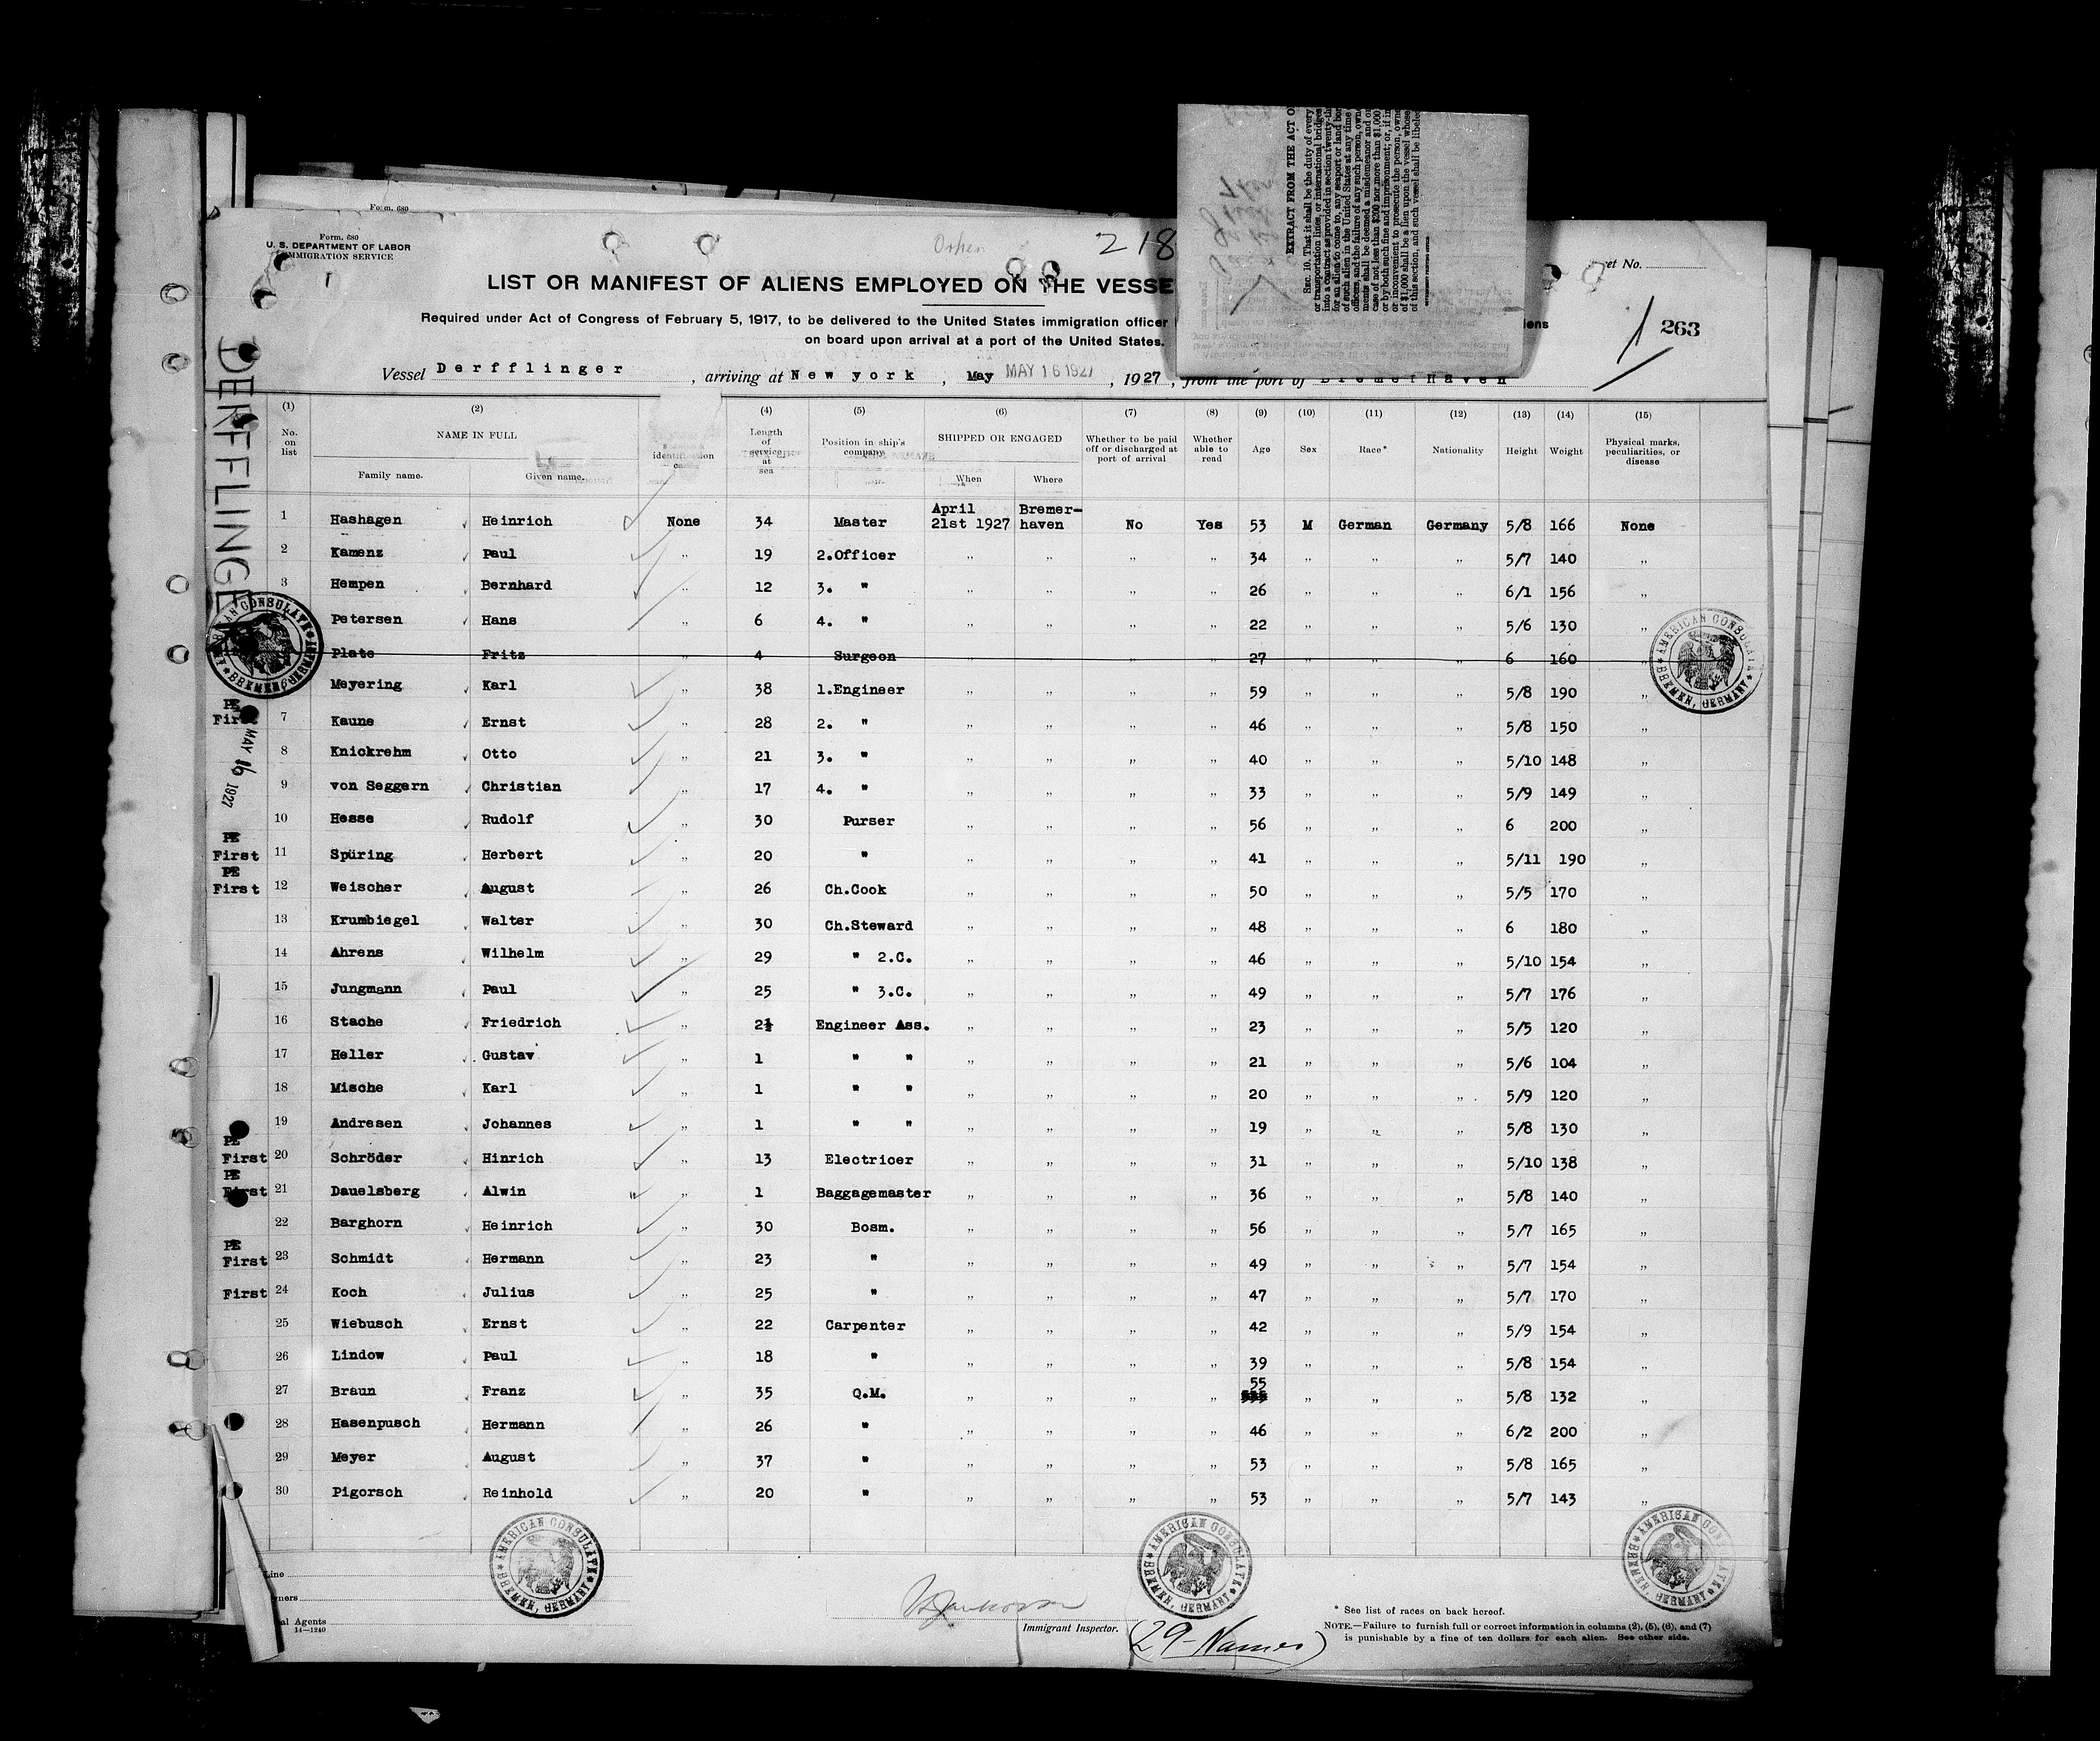 Form. 680
Form. 680
U. S. DEPARTMENT OF LABOR
IMMIGRATION SERVICE
218
LIST OR MANIFEST OF ALIENS EMPLOYED ON THE VESSE
Required under Act of Congress of February 5, 1917, to be delivered to the United States immigration officer
on board upon arrival at a port of the United States.
EXTRACT FROM THE ACT O
SEC. 10. That it shall be the duty of every
or transportation lines, or international bridges
into a contract as provided in section twenty-th
for an alien to come to, any seaport or land bo
of such alien in the United States at any time
officers, and the failure of any such person, own
ments shall be deemed a misdemeanor and o
case of not less than $200 nor more than $1,000
or by both such fine and imprisonment; or, if in
or inconvenient to prosecute the person, owne
of $1,000 shall be a lien upon the vessel whose
of this section, and such vessel shall be libeled
eet No.
iens
263
Vessel Derfflinger, arriving at New york, May MAY 16 1927, 1927, from the port of Bremerhaven
DERFFLINGE
(1) (2) (4) (5) (6) (7) (8) (9) (10) (11) (12) (13) (14) (15)
No. on list NAME IN FULL Family name. Given name. identification Length of service at sea Position in ship's company SHIPPED OR ENGAGED When Where Whether to be paid off or discharged at port of arrival Whether able to read Age Sex Race* Nationality Height Weight Physical marks, peculiarities, or disease
1 Hashagen Heinrich None 34 Master April 21st 1927 Bremer-haven No Yes 53 M German Germany 5/8 166 None
2 Kamenz Paul " 19 2.Officer " " " " 34 " " " 5/7 140 "
3 Hempen Bernhard " 12 3. " " " " " 26 " " " 6/1 156 "
Petersen Hans " 6 4. " " " " " 22 " " " 5/6 130 "
Plate Fritz " 4 Surgeon " " " " 27 " " " 6 160 "
Meyering Karl " 38 1.Engineer " " " " 59 " " " 5/8 190 "
PE First 7 Kaune Ernst " 28 2. " " " " " 46 " " " 5/8 150 "
MAY 16 1927
8 Knickrehm Otto " 21 3. " " " " " 40 " " " 5/10 148 "
9 von Seggern Christian " 17 4. " " " " " 33 " " " 5/9 149 "
10 Hesse Rudolf " 30 Purser " " " " 56 " " " 6 200 "
PE First 11 Spüring Herbert " 20 " " " " " 41 " " " 5/11 190 "
PE First 12 Weischer August " 26 Ch.Cook " " " " 50 " " " 5/5 170 "
13 Krumbiegel Walter " 30 Ch.Steward " " " " 48 " " " 6 180 "
14 Ahrens Wilhelm " 29 " 2.C. " " " " 46 " " " 5/10 154 "
15 Jungmann Paul " 25 " 3.C. " " " " 49 " " " 5/7 176 "
16 Stache Friedrich " 2½ Engineer Ass. " " " " 23 " " " 5/5 120 "
17 Heller Gustav " 1 " " " " " " 21 " " " 5/6 104 "
18 Mische Karl " 1 " " " " " " 20 " " " 5/9 120 "
19 Andresen Johannes " 1 " " " " " " 19 " " " 5/8 130 "
PE First 20 Schröder Hinrich " 13 Electricer " " " " 31 " " " 5/10 138 "
PE First 21 Dauelsberg Alwin " 1 Baggagemaster " " " " 36 " " " 5/8 140 "
22 Barghorn Heinrich " 30 Bosm. " " " " 56 " " " 5/7 165 "
PE First 23 Schmidt Hermann " 23 " " " " " 49 " " " 5/7 154 "
First 24 Koch Julius " 25 " " " " " 47 " " " 5/7 170 "
25 Wiebusch Ernst " 22 Carpenter " " " " 42 " " " 5/9 154 "
26 Lindow Paul " 18 " " " " " 39 " " " 5/8 154 "
27 Braun Franz " 35 Q.M. " " " " 55 " " " 5/8 132 "
28 Hasenpusch Hermann " 26 " " " " " 46 " " " 6/2 200 "
29 Meyer August " 37 " " " " " 53 " " " 5/8 165 "
30 Pigorsch Reinhold " 20 " " " " " 53 " " " 5/7 143 "
AMERICAN CONSULATE BREMEN, GERMANY
AMERICAN CONSULATE BREMEN, GERMANY
AMERICAN CONSULATE BREMEN, GERMANY
AMERICAN CONSULATE BREMEN, GERMANY
AMERICAN CONSULATE BREMEN, GERMANY
Line
ners
al Agents
14—1240
Immigrant Inspector.
(29-Names)
* See list of races on back hereof.
NOTE.—Failure to furnish full or correct information in columns (2), (5), (6), and (7)
is punishable by a fine of ten dollars for each alien. See other side.